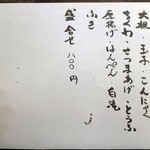 大根・玉子・こんにゃく
ちくわ・さつまあげ・とうふ
厚揚げ・はんぺん・白滝
ふき
盛合せ 八〇〇円